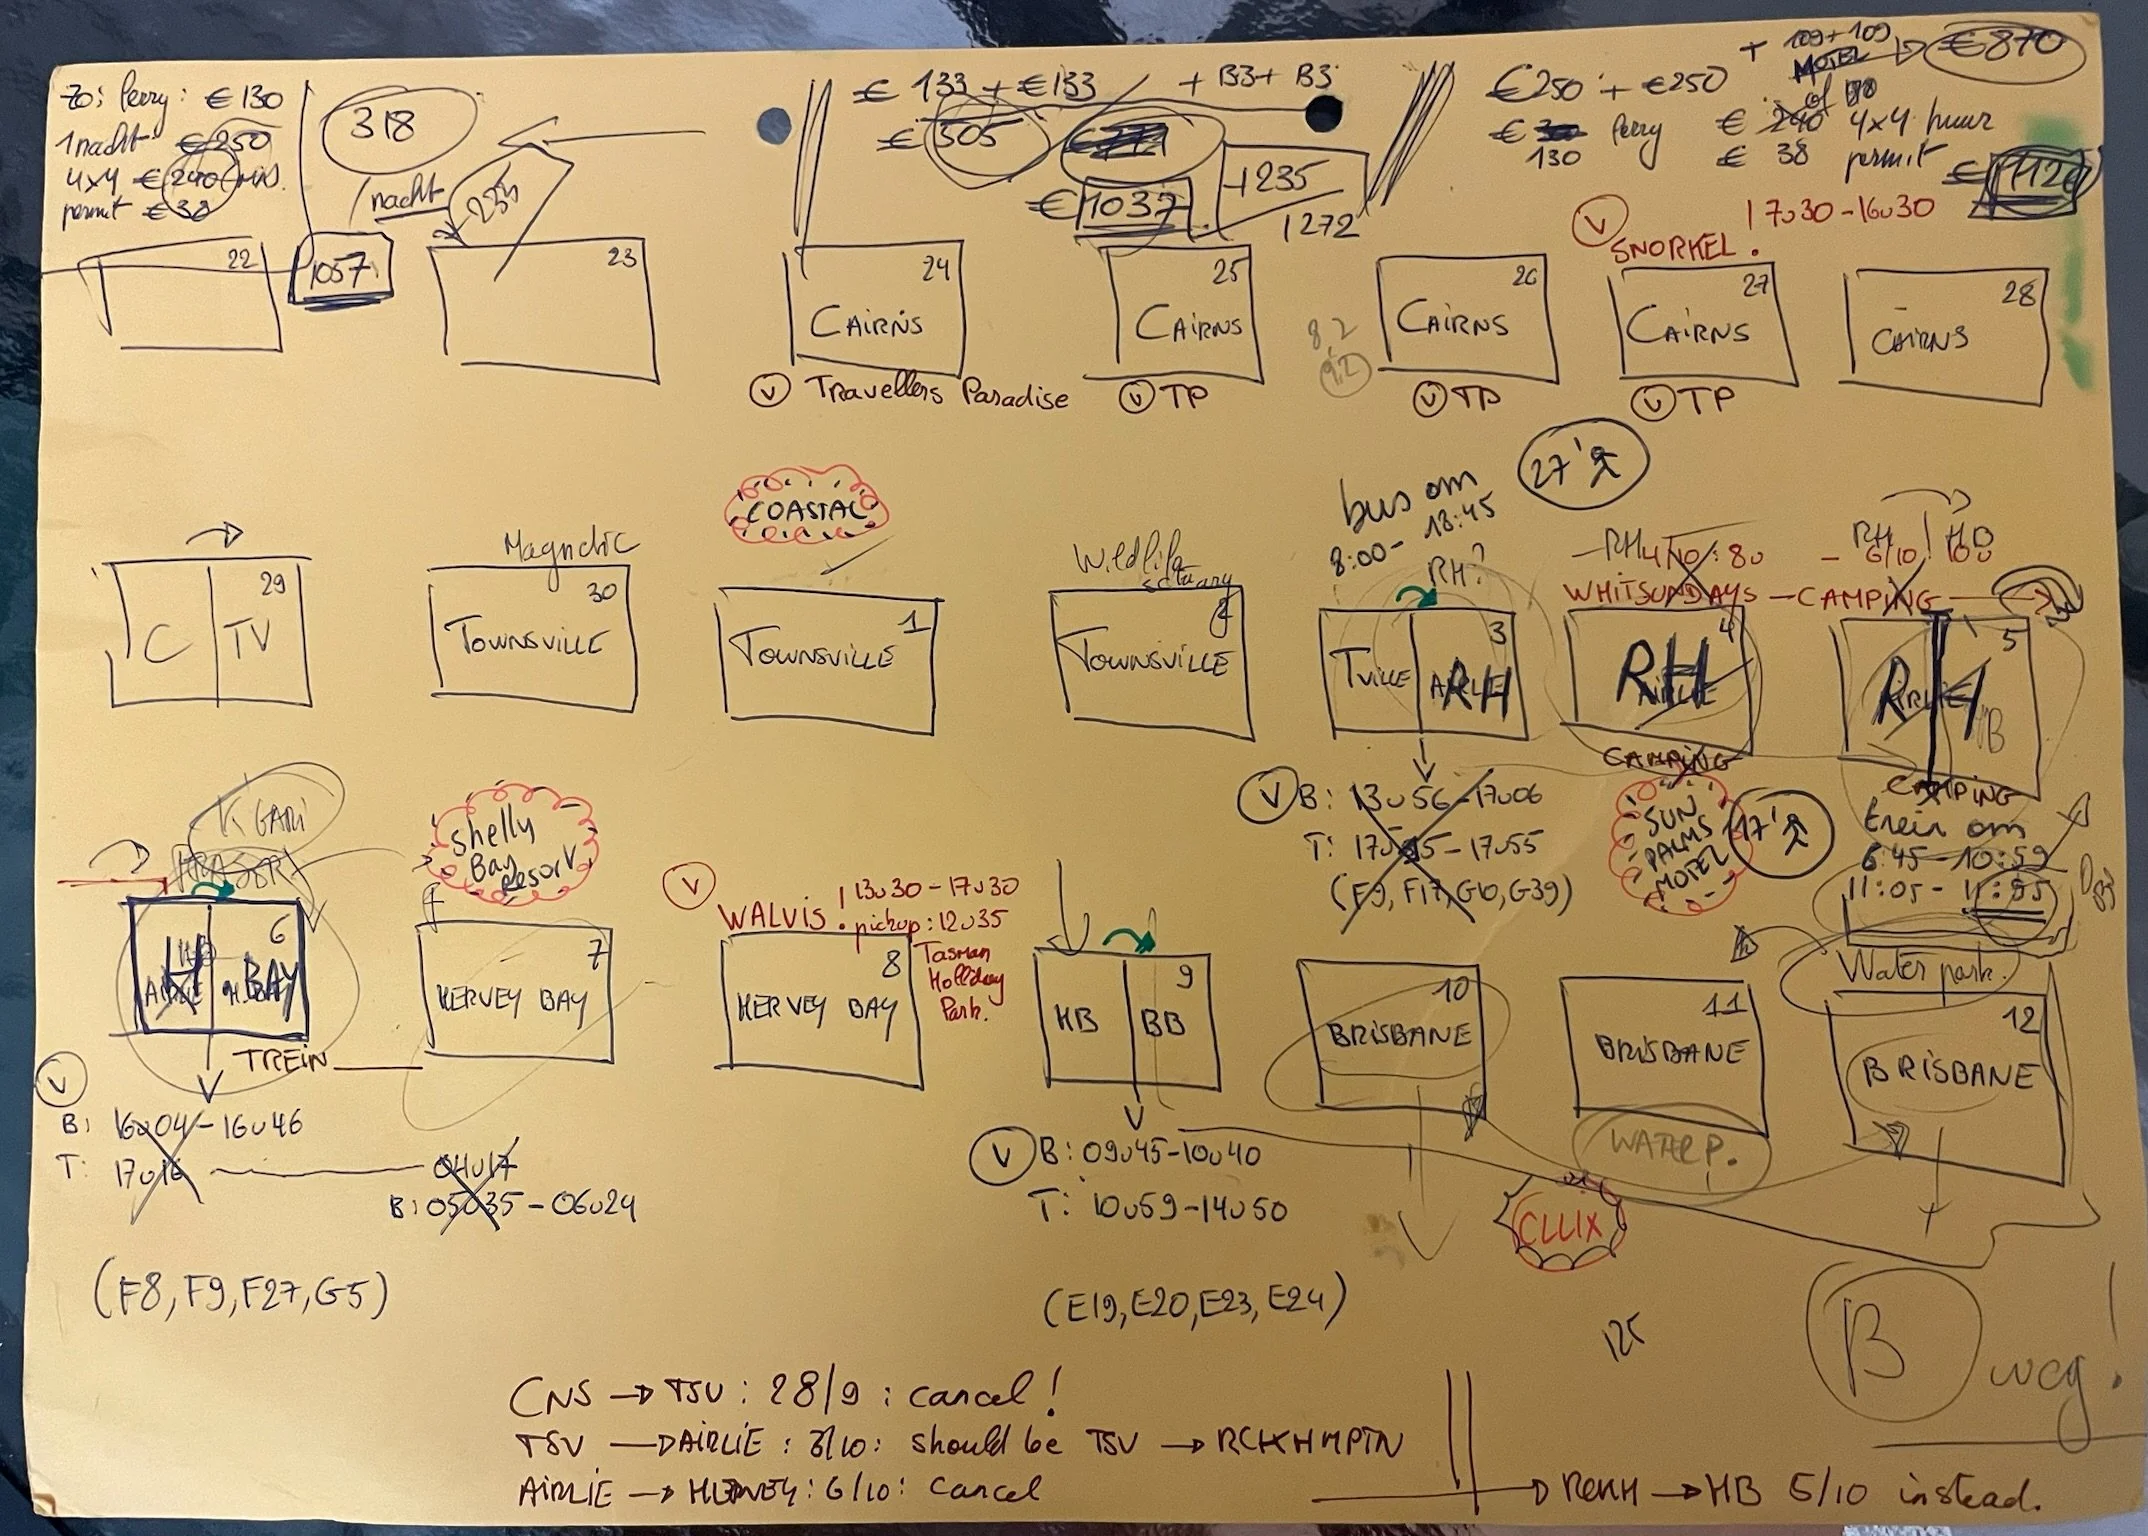 zo: Ferry: €130
1 nacht €250
4x4 €240
permit €38
318
nacht
235
1057
€ 133 + €133 + B3 + B3
€ 305
€ 1037
+ 235
1272
+ 109 + 109
MOTEL
€870
€250 + €250
130 Ferry
€ 240 4x4 huur
€ 38 permit
€ 1126
22
23
24
CAIRNS
V Travellers Paradise
25
CAIRNS
V TP
8,2
9,2
26
CAIRNS
V TP
V SNORKEL! 7u30 - 16u30
27
CAIRNS
V TP
28
CAIRNS
29
C TV
Magnetic
30
TOWNSVILLE
COASTAL
1
TOWNSVILLE
Wildlife
TOWNSVILLE
bus om
8:00 - 18:45
RH?
27'
3
TVILLE AIRLIE RH
V B: 13u56 - 17u06
T: 17u45 - 17u55
(F9, F17, G10, G39)
RH 4/10: 8u
WHITSUNDAYS — CAMPING
4
AIRLIE RH
CAMPING
SUN
PALMS
MOTEL
17'
RH HB
6/10 10u
5
AIRLIE RH HB
CAMPING
trein om
6:45 - 10:59
11:05 - 11:55
K'GARI
6
H BAY
TREIN
V
B: 16u04 - 16u46
T: 17u16 — 04u17
B: 05u35 - 06u24
(F8, F9, F27, G5)
Shelly
Bay
Resort
7
HERVEY BAY
V WALVIS! 13u30 - 17u30
pickup: 12u35
Tasman
Holliday
Park.
8
HERVEY BAY
9
HB BB
V B: 09u45 - 10u40
T: 10u59 - 14u50
(E19, E20, E23, E24)
10
BRISBANE
11
BRISBANE
WATERP.
CLLIX
Water park.
12
BRISBANE
125
B weg!
CNS → TSV: 28/9: cancel!
TSV → AIRLIE: 3/10: should be TSV → RCKHMPTN
AIRLIE → HERVEY: 6/10: cancel
→ RCKH → HB 5/10 instead.